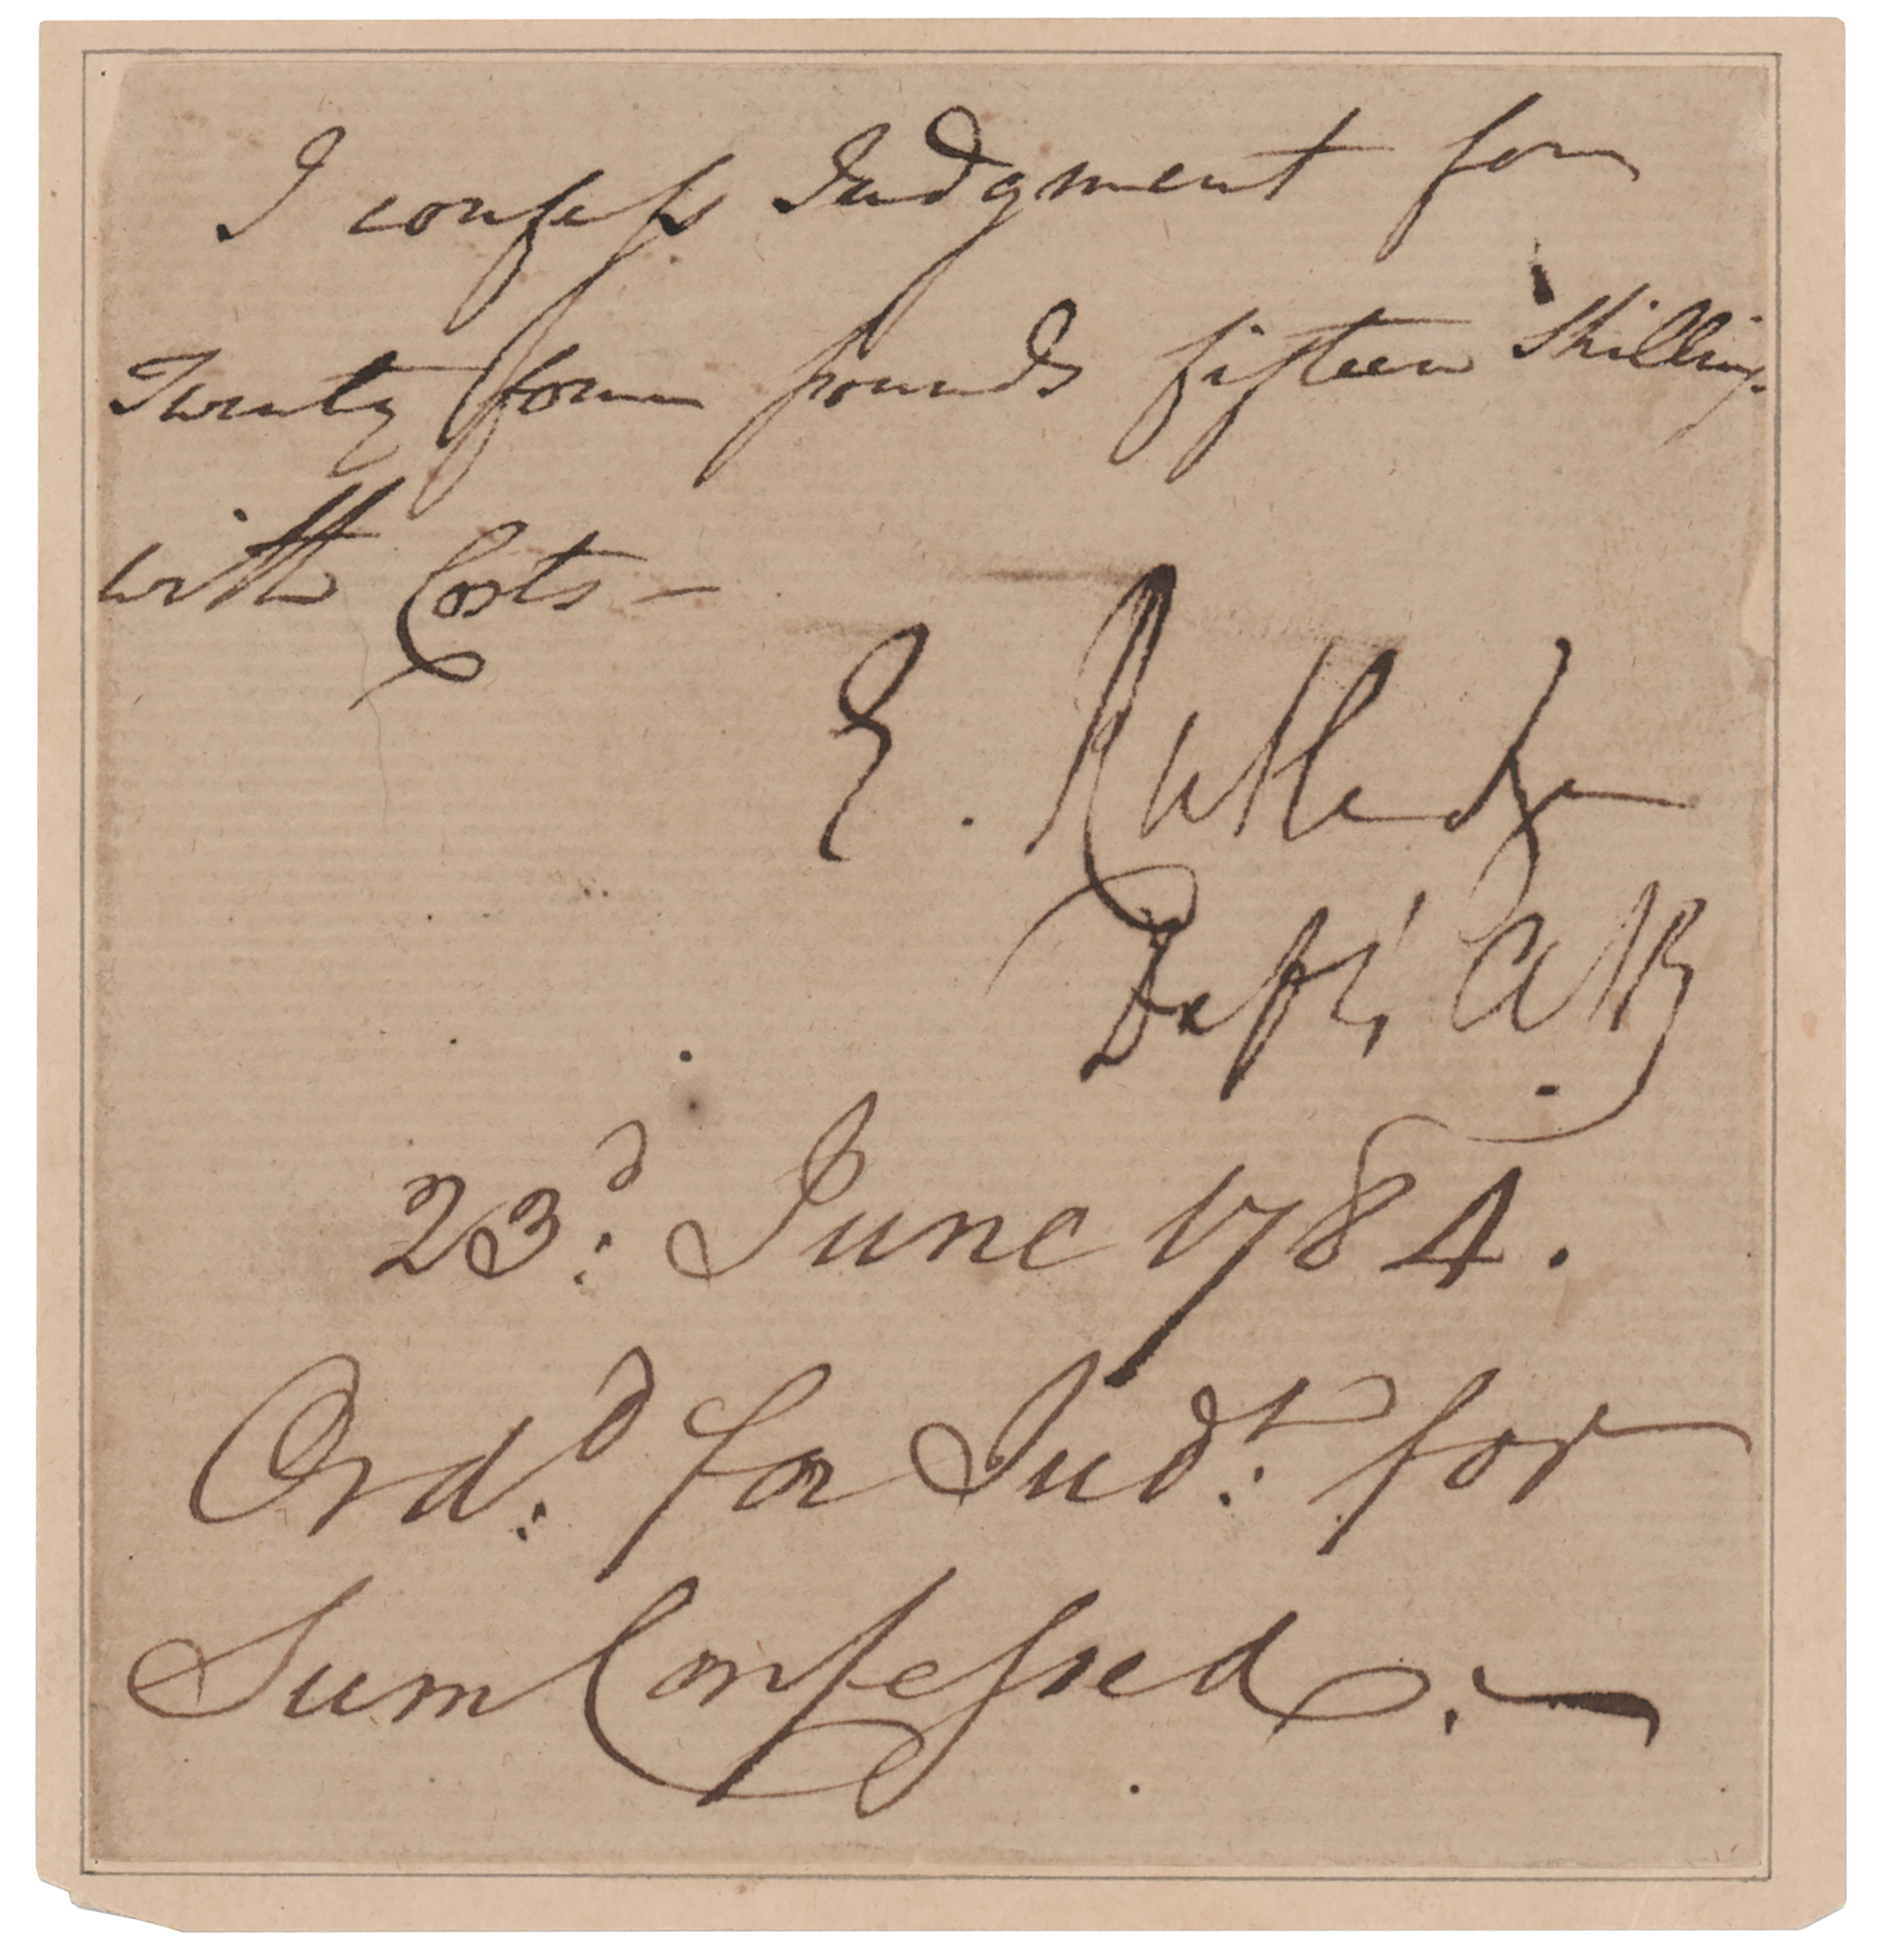 I confess Judgment for
Twenty four pounds fifteen Shillings
with Costs —
E. Rutledge
Defts, Atty
23d: June 1784.
Ord:d for Jud:t for
Sum Confessed. —